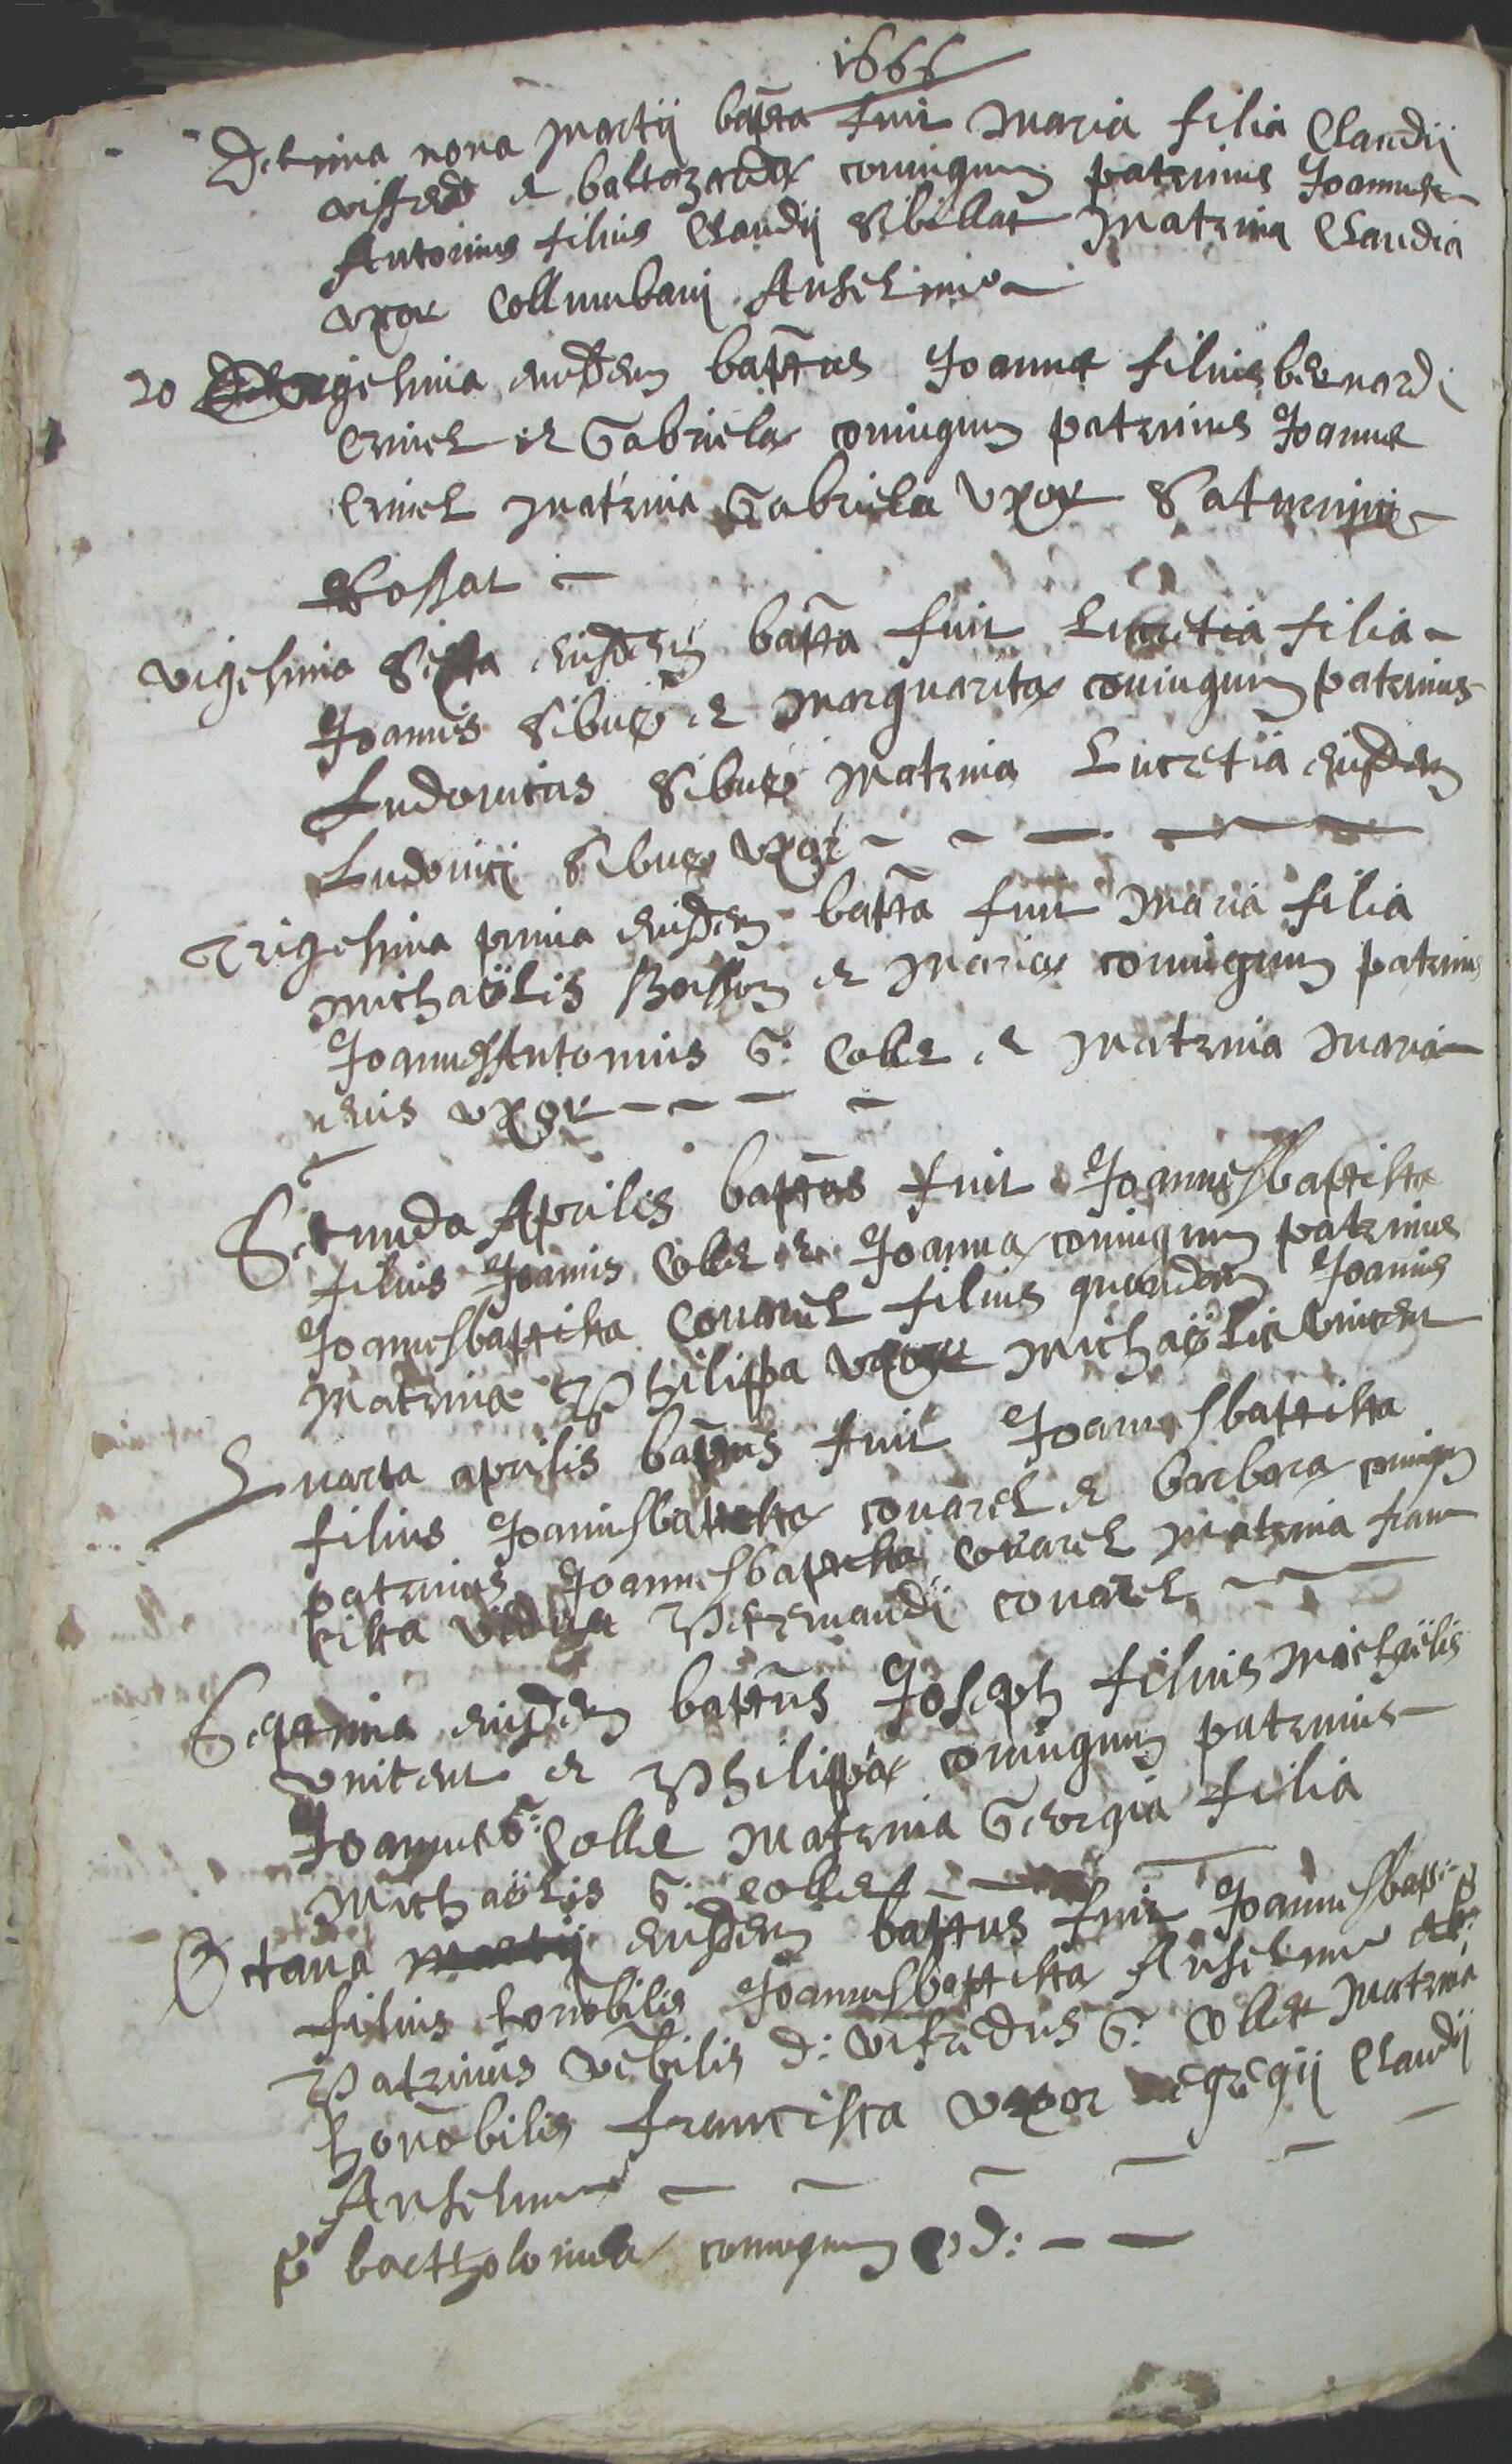 1666
Decima nona Martij bapta fuit Maria filia Claudij
et baltazarde coniugum patrinus Joannes
Antonius filius Claudij Sibillat Matrina Claudia
uxor Collumbani Anselme
20 Vigesima eiusdem baptus Joannes filius bernardi
Crusel et Gabrielae coniugum patrinus Joannes
Crusel matrina Gabriela uxor Saturnini
Rossat
Vigesima Sexta eiusdem batta fuit Lucretia filia
Joannis Sibue et Marguaritae coniugum patrinus
Ludovicus Sibue Matrina Lucretia eiusdem
Ludovici Sibue uxor
Trigesima prima eiusdem batta fuit Maria filia
Michaëlis et Mariae coniugum patrinus
Joannes Antonius G: Colle et Matrina Maria
eius uxor
Secunda Aprilis baptus fuit Joannesbaptista
filius Joannis Colle et Joannae coniugum patrinus
Joannesbaptista Covarel filius quondam Joannis
Matrina Philippa uxor Michaëlis Vincent
Quarta aprilis baptus fuit Joannesbattista
filius Joannisbattistae covarel et barbarae coniugum
patrinus Joannesbaptista covarel Matrina fran
cisca vidua Petremandi covarel
Septima eiusdem baptus Joseph filius Michaëlis
Vincent et Philippae coniugum patrinus
Joannes G: Colle Matrina Georgia filia
Michaëlis G: Collet
Octava martij eiusdem battus fuit Joannesbapta
filius honobilis Joannisbaptistae Anselme et
Patrinus Vebilis D: Vifredus G: Collet Matrina
honobilis francisca uxor egregij Claudij
Anselme
bartholomea coniugum